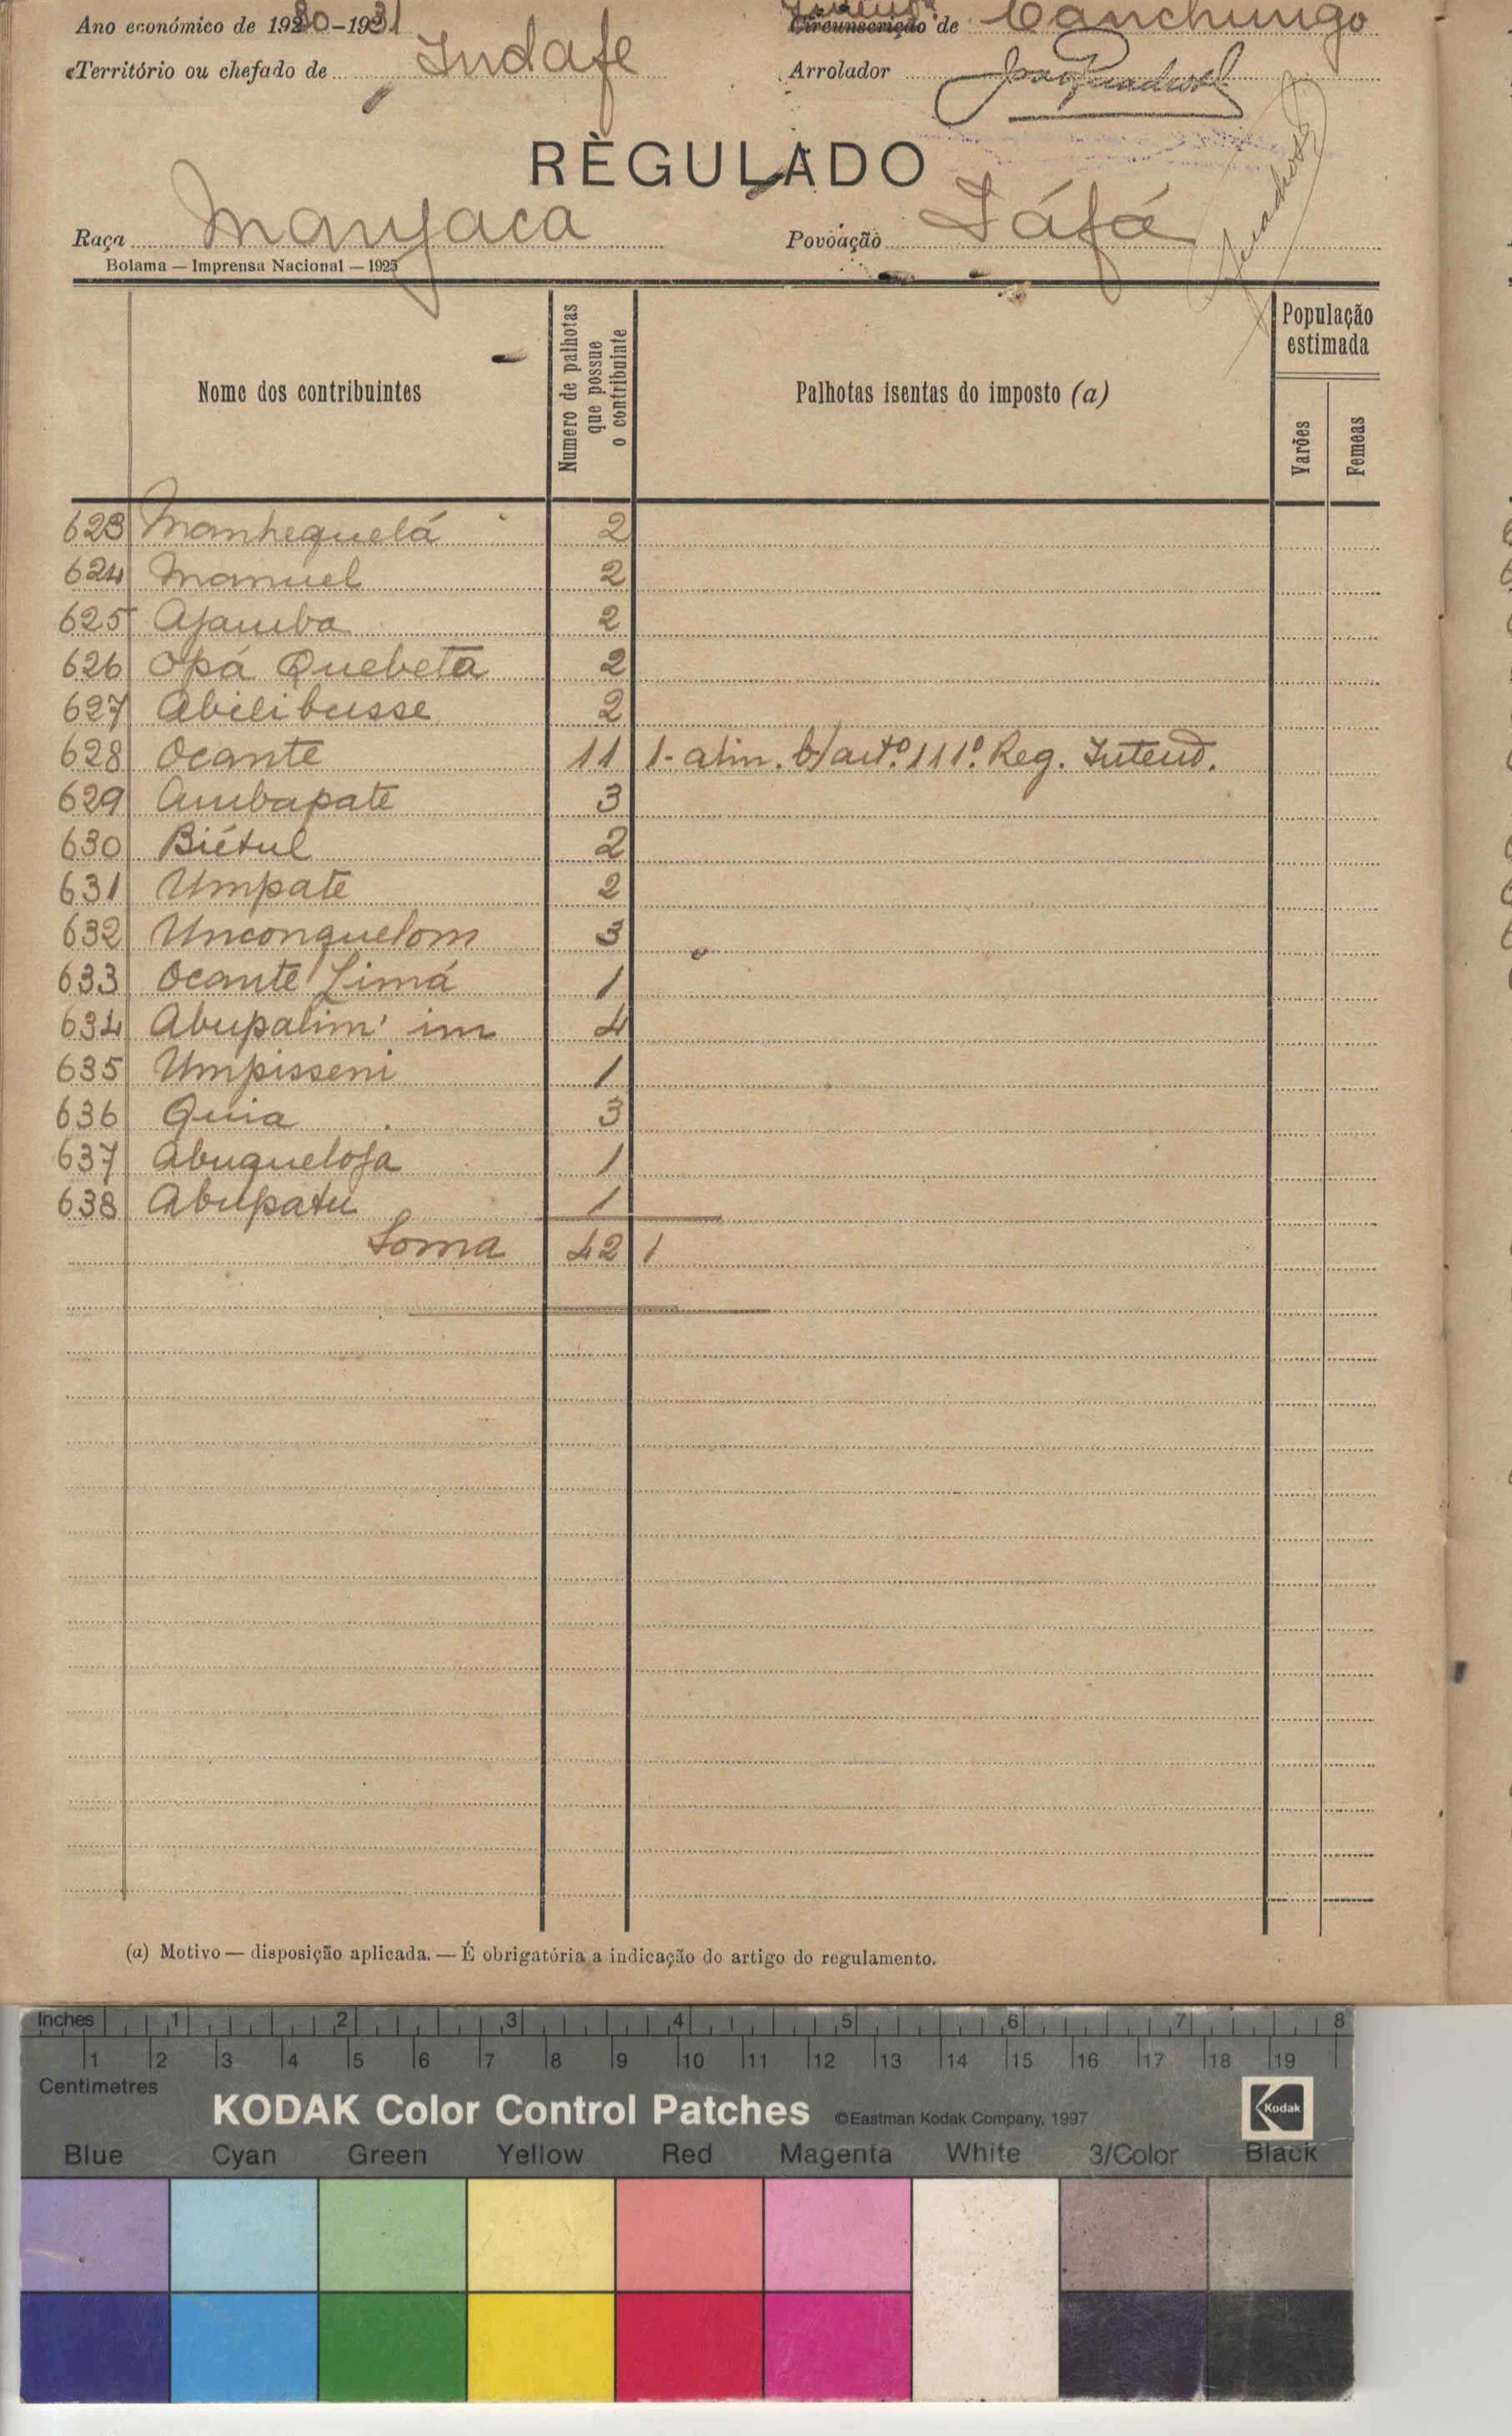 Ano económico de 1930-1931 Circunscrição de Canchungo
Território ou chefado de Indafe Arrolador
RÈGULADO
Raça Manjaca Povoação Táfá
Bolama — Imprensa Nacional — 1925
Nome dos contribuintes
Numero de palhotas que possue o contribuinte
Palhotas isentas do imposto (a)
População estimada
Varões
Femeas
623 Manhequelá 2
624 Manuel 2
625 Ajamba 2
626 Opá Quebeta 2
627 Abilibusse 2
628 Ocante 11 1- alin. b) artº. 111º. Reg. Intend.
629 Ambapate 3
630 Biétul 2
631 Umpate 2
632 Unconquelom 3
633 Ocante Limá 1
634 Abupalim' im 4
635 Umpisseni 1
636 Quia 3
637 Abuqueloja 1
638 Abupatu 1
Soma 42 1
(a) Motivo — disposição aplicada. — É obrigatória a indicação do artigo do regulamento.
Inches 1 2 3 4 5 6 7 8
1 2 3 4 5 6 7 8 9 10 11 12 13 14 15 16 17 18 19
Centimetres
KODAK Color Control Patches ©Eastman Kodak Company, 1997 Kodak
Blue Cyan Green Yellow Red Magenta White 3/Color Black